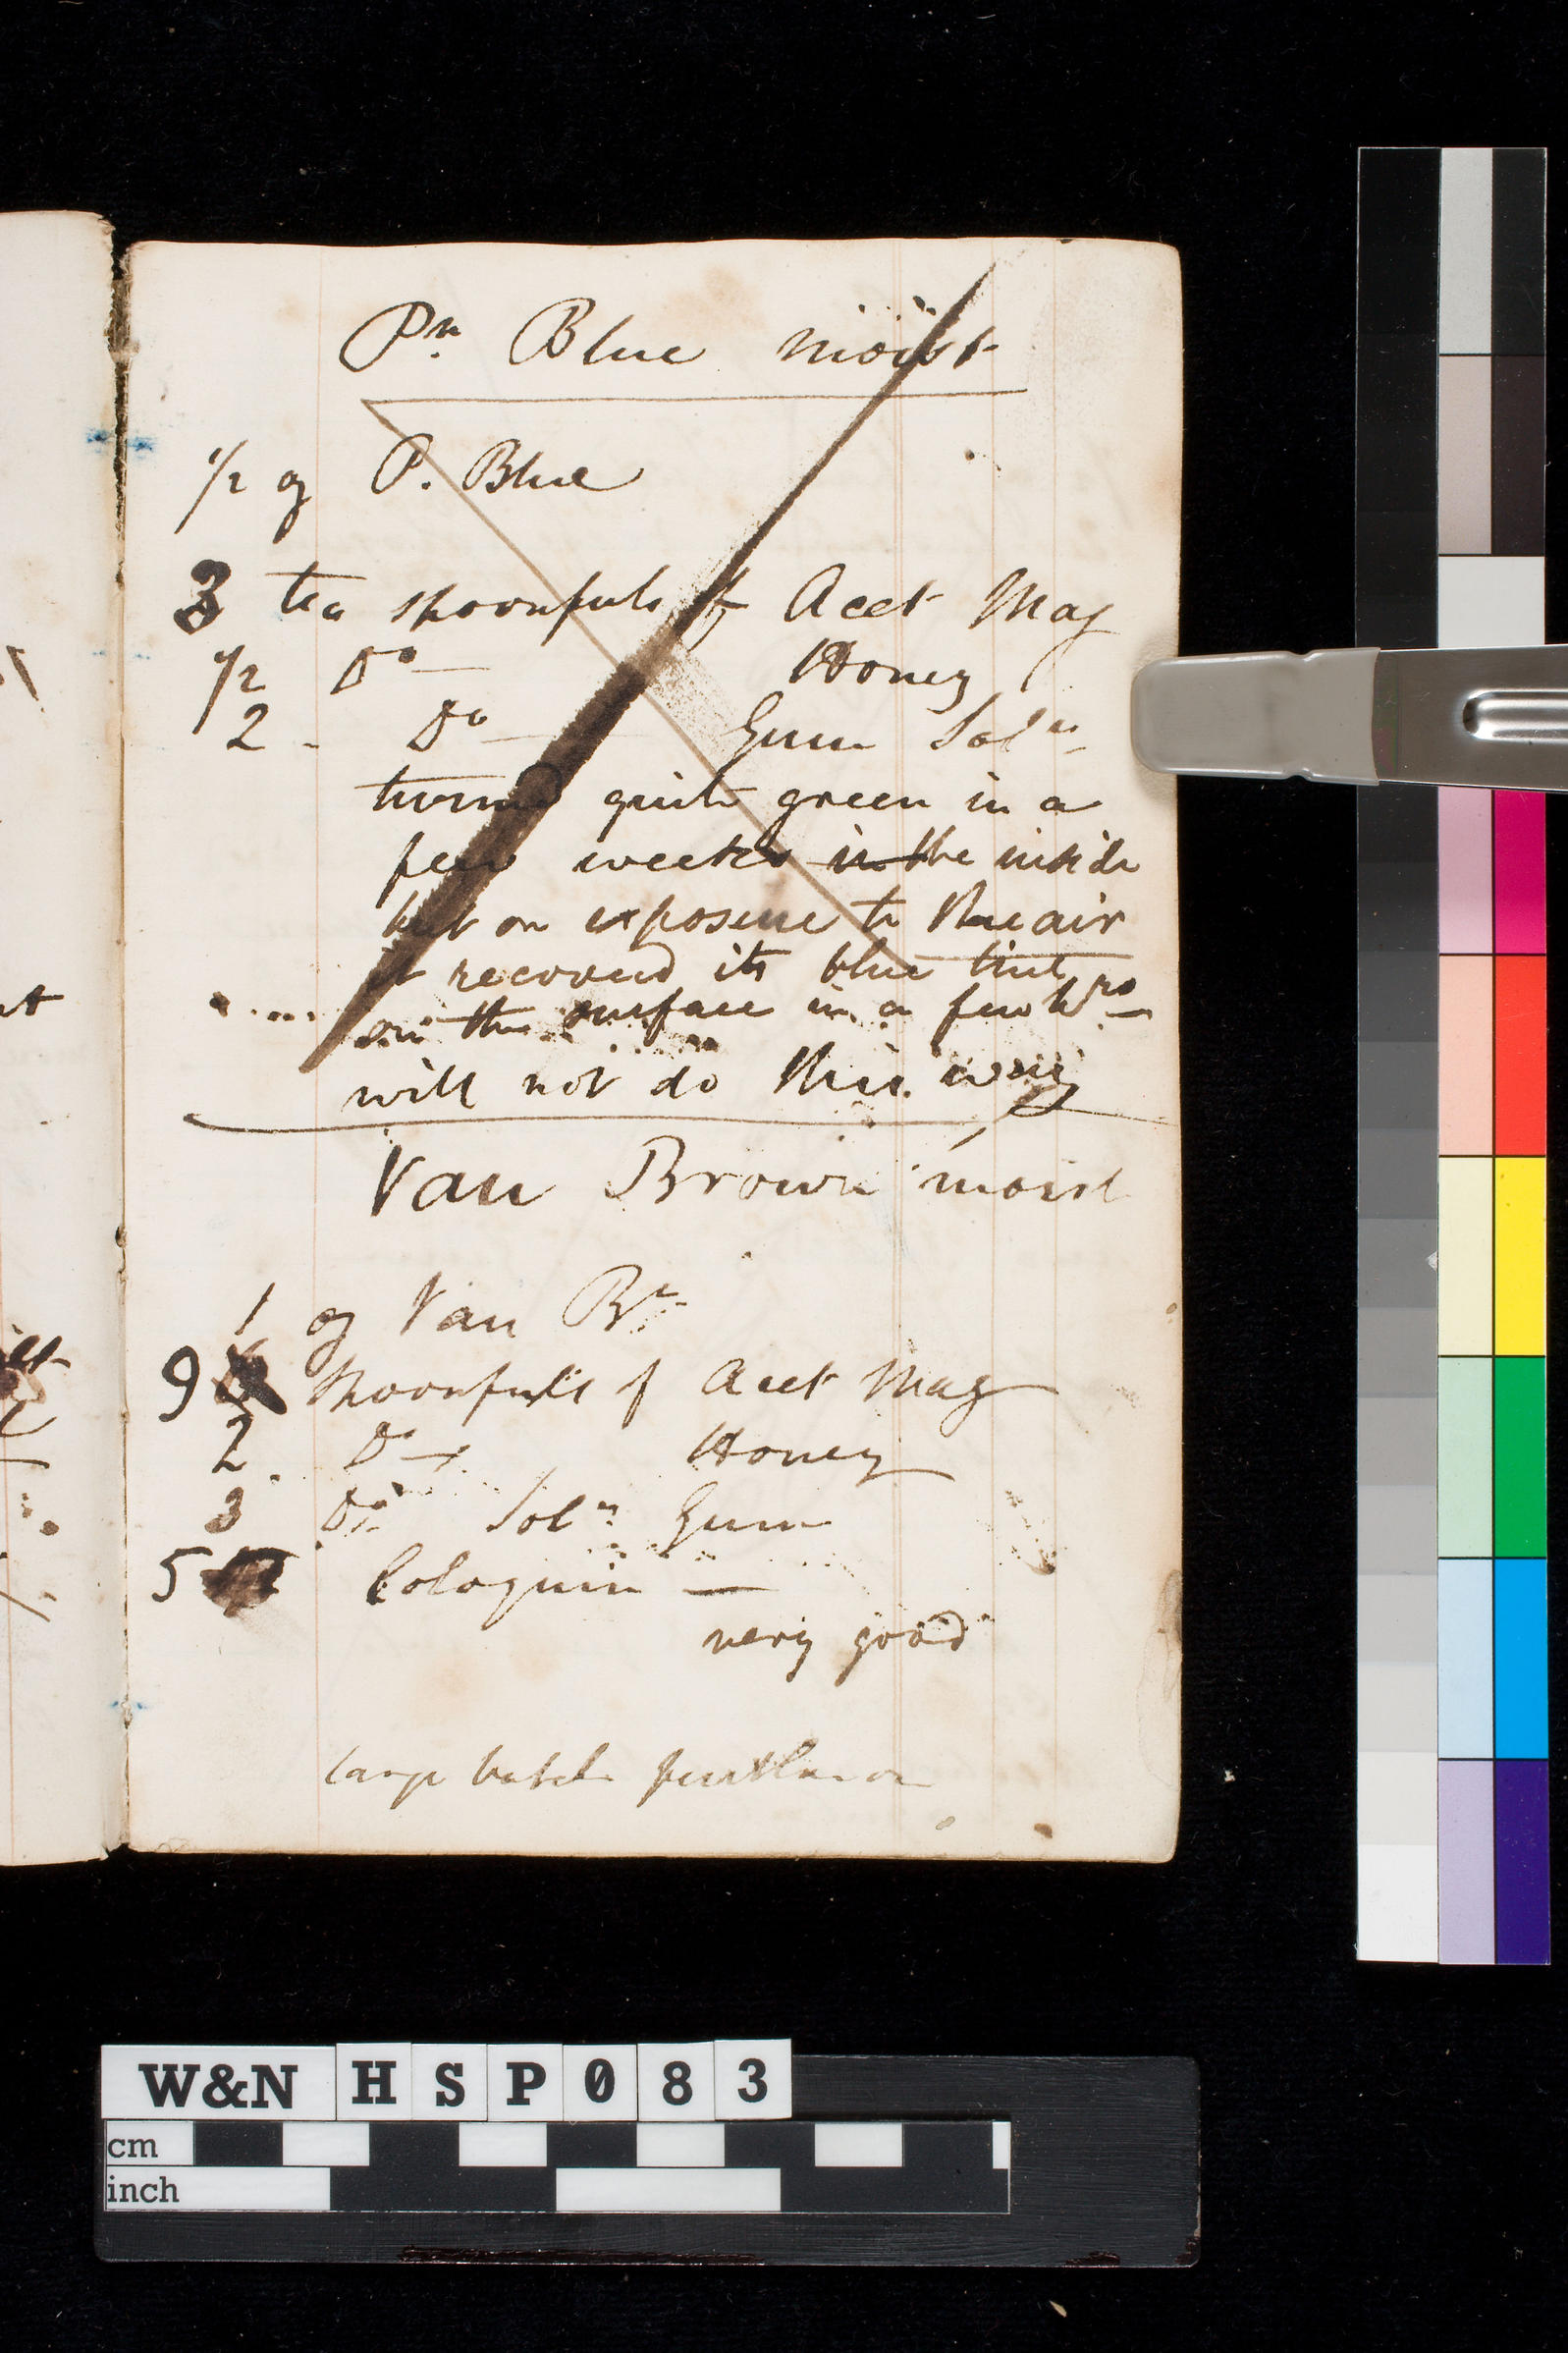 Pn. Blue moist
1/2 oz P. Blue
3 tea spoonfuls of Acet Mag
1/2 Do — Honey
2 - Do — Gum Soln
turned quite green in a
few weeks in the inside
but on exposure to the air
it recovered its blue tint
on the surface in a few hrs —
will not do this way
Van Brown moist
1 oz Van Bn
9 spoonfuls of Acet Mag
2 . Do — Honey
3 Do Soln Gum
5 Coloquin —
very good
large batch further on
W&N HSP083
cm
inch